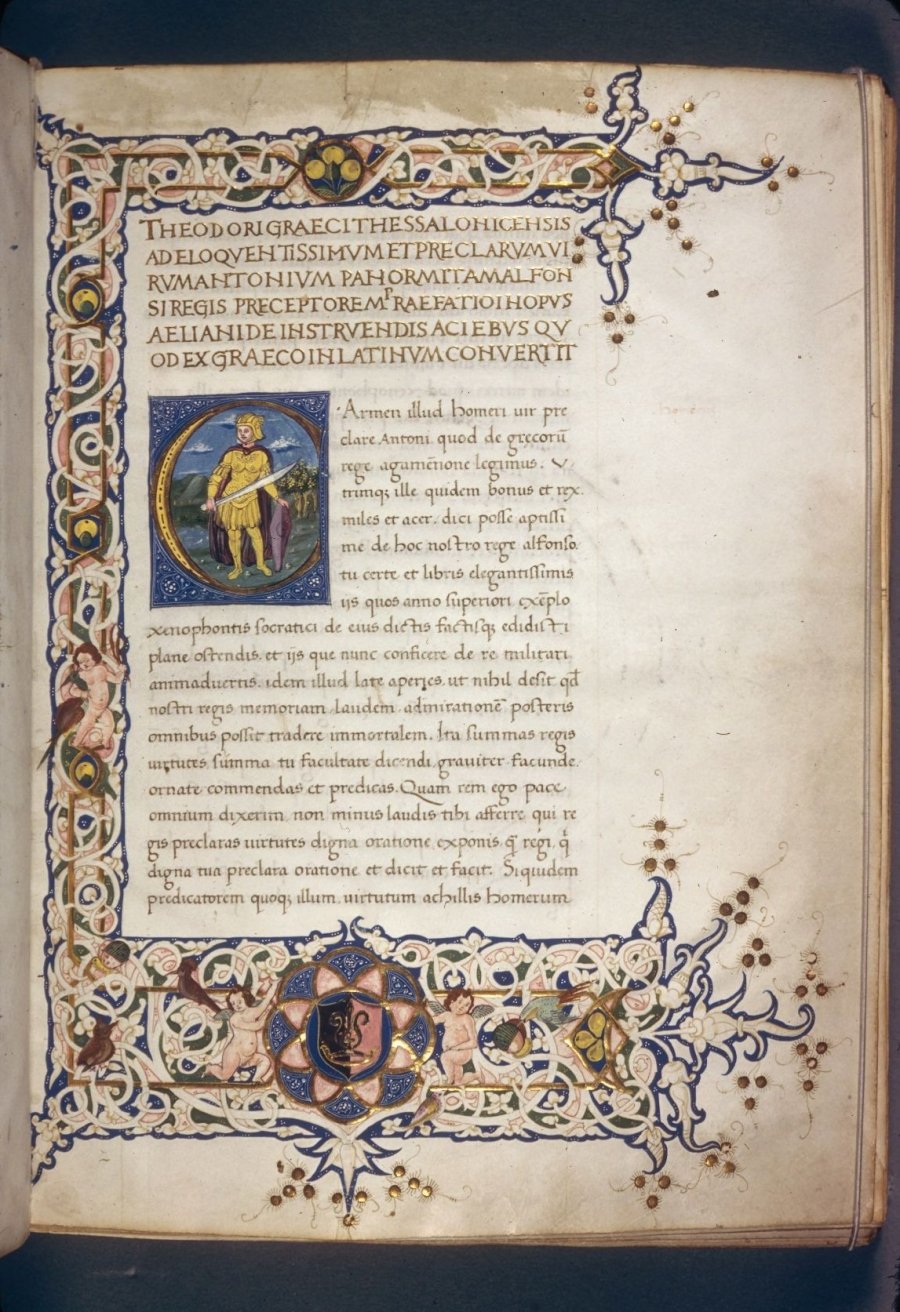 THEODORI GRAECI THESSALONICENSIS
AD ELOQVENTISSIMVM ET PRECLARVM VI
RVM ANTONIVM PANORMITAM ALFON
SI REGIS PRECEPTOREM PRAEFATIO IN OPVS
AELIANI DE INSTRVENDIS ACIEBVS QV
OD EX GRAECO IN LATINVM CONVERTIT
CArmen illud homeri uir pre
clare Antoni quod de gręcorū
rege agamēnone legimus. V
trimqȝ ille quidem bonus et rex.
miles et acer. dici posse aptissi
me de hoc nostro rege alfonso.
tu certe et libris elegantissimis
ijs quos anno superiori exēplo
xenophontis socratici de eius dictis factisqȝ edidisti
plane ostendis. et ijs que nunc conficere de re militari
animaduertis. idem illud late aperies. ut nihil desit qđ
nostri regis memoriam. laudem. admirationē posteris
omnibus possit tradere immortalem. Ita summas regis
uirtutes sūma tu facultate dicendi. grauiter. facunde.
ornate commendas et predicas. Quam rem ego pace
omnium dixerim. non minus laudis tibi afferre. qui re
gis preclaras uirtutes digna oratione exponis. q̄ regi. q̇
digna tua preclara oratione et dicit et facit. Siquidem
predicatorem quoqȝ illum. uirtutum achillis homerum